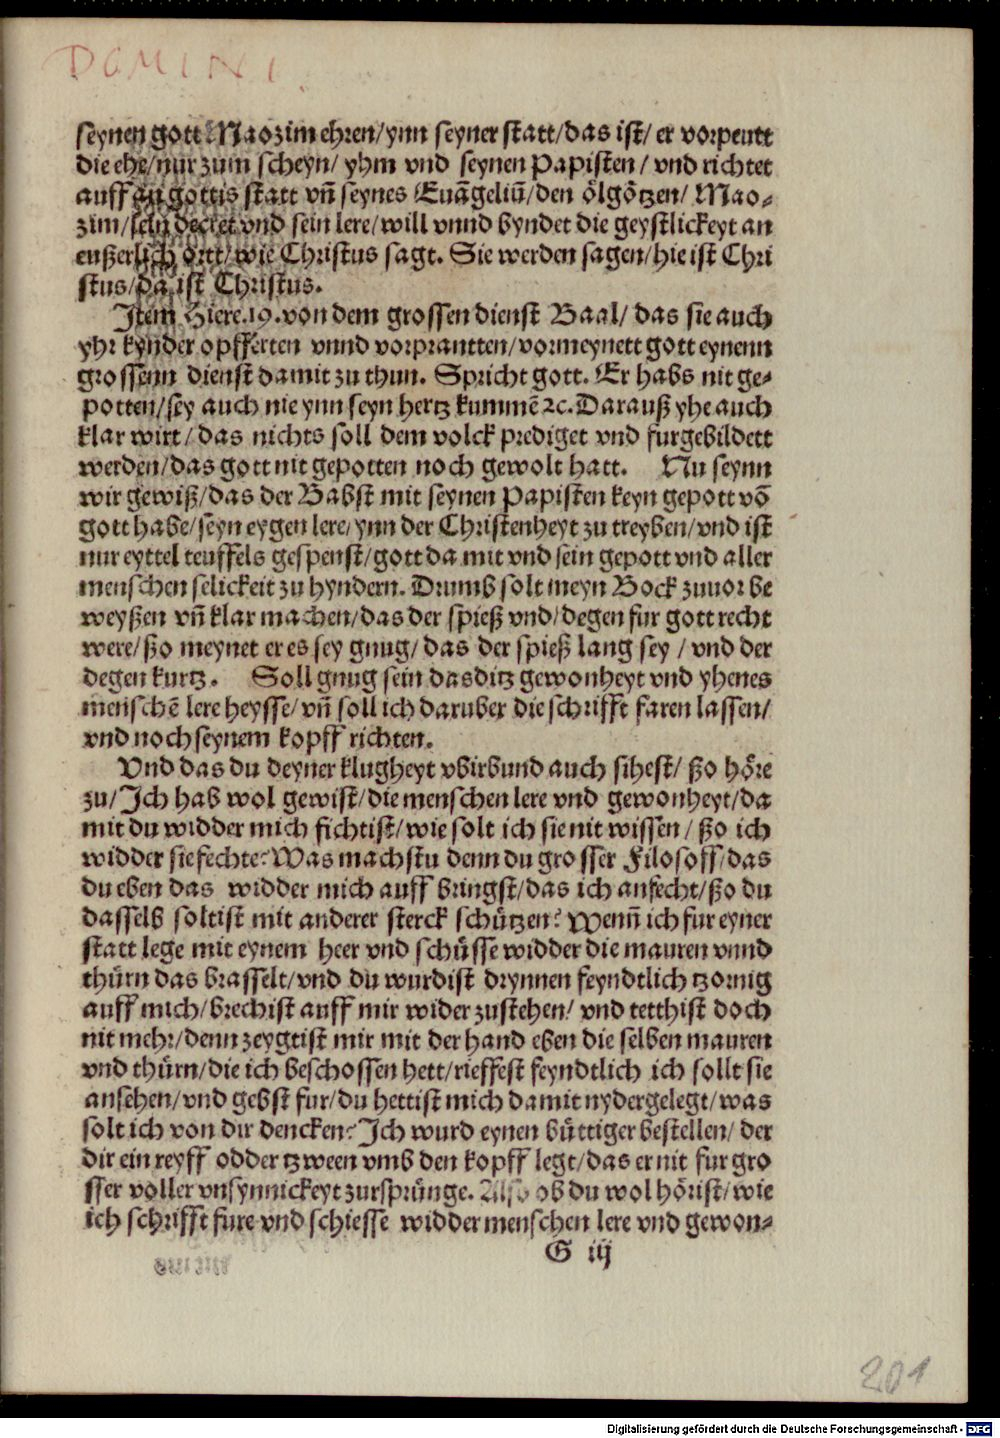 DOMINI
seynen gott Maozim ehren/ynn seyner statt/das ist/ er vorpeutt
die ehe/nur zum scheyn/ yhm vnd seynen Papisten/ vnd richtet
auff an gottis statt vñ seynes Euãgeliũ/den ölgötzen/ Mao⸗
zim/sein decret vnd sein lere/will vnnd byndet die geystlickeyt an
eußerlich ortt/wie Christus sagt. Sie werden sagen/hie ist Chri
stus/da ist Christus.
Item Hiere.19.von dem grossen dienst Baal/ das sie auch
yhr kynder opfferten vnnd vorprantten/vormeynett gott eynenn
grossenn dienst damit zu thun. Spricht gott. Er habs nit ge⸗
potten/sey auch nie ynn seyn hertz kummẽ ⁊c. Darauß yhe auch
klar wirt/das nichts soll dem volck prediget vnd furgebildett
werden/das gott nit gepotten noch gewolt hatt. Nu seynn
wir gewiß/das der Babst mit seynen Papisten keyn gepott võ
gott habe/seyn eygen lere/ynn der Christenheyt zu treyben/vnd ist
nur eyttel teuffels gespenst/gott da mit vnd sein gepott vnd aller
menschen selickeit zu hyndern. Drumb solt meyn Bock zuuor be
weyßen vñ klar machen/das der spieß vnd/degen fur gott recht
were/ßo meynet er es sey gnug/das der spieß lang sey/vnd der
degen kurtz. Soll gnug sein das ditz gewonheyt vnd yhenes
menschẽ lere heysse/vñ soll ich daruber die schrifft faren lassen/
vnd noch seynem kopff richten.
Vnd das du deyner klugheyt vbirbund auch sihest/ ßo höre
zu/Ich hab wol gewist/die menschen lere vnd gewonheyt/da
mit du widder mich fichtist/wie solt ich sie nit wissen/ ßo ich
widder sie fechte? Was machstu denn du grosser Filosoff/das
du eben das widder mich auff bringst/das ich anfecht/ßo du
dasselb soltist mit anderer sterck schützen? Wenñ ich fur eyner
statt lege mit eynem heer vnd schüsse widder die mauren vnnd
thürn das brasselt/vnd du wurdist drynnen feyndtlich tzornig
auff mich/brechist auff mir wider zustehen/ vnd tetthist doch
nit mehr/denn zeygtist mir mit der hand eben die selben mauren
vnd thürn/die ich beschossen hett/rieffest feyndtlich ich sollt sie
ansehen/vnd gebst fur/du hettist mich damit nydergelegt/was
solt ich von dir dencken? Ich wurd eynen büttiger bestellen/ der
dir ein reyff odder tzween vmb den kopff legt/das er nit fur gro
sser voller vnsynnickeyt zursprünge. Also ob du wol hörist/wie
ich schrifft fure vnd schiesse widder menschen lere vnd gewon⸗
G iij
201
Digitalisierung gefördert durch die Deutsche Forschungsgemeinschaft - DFG